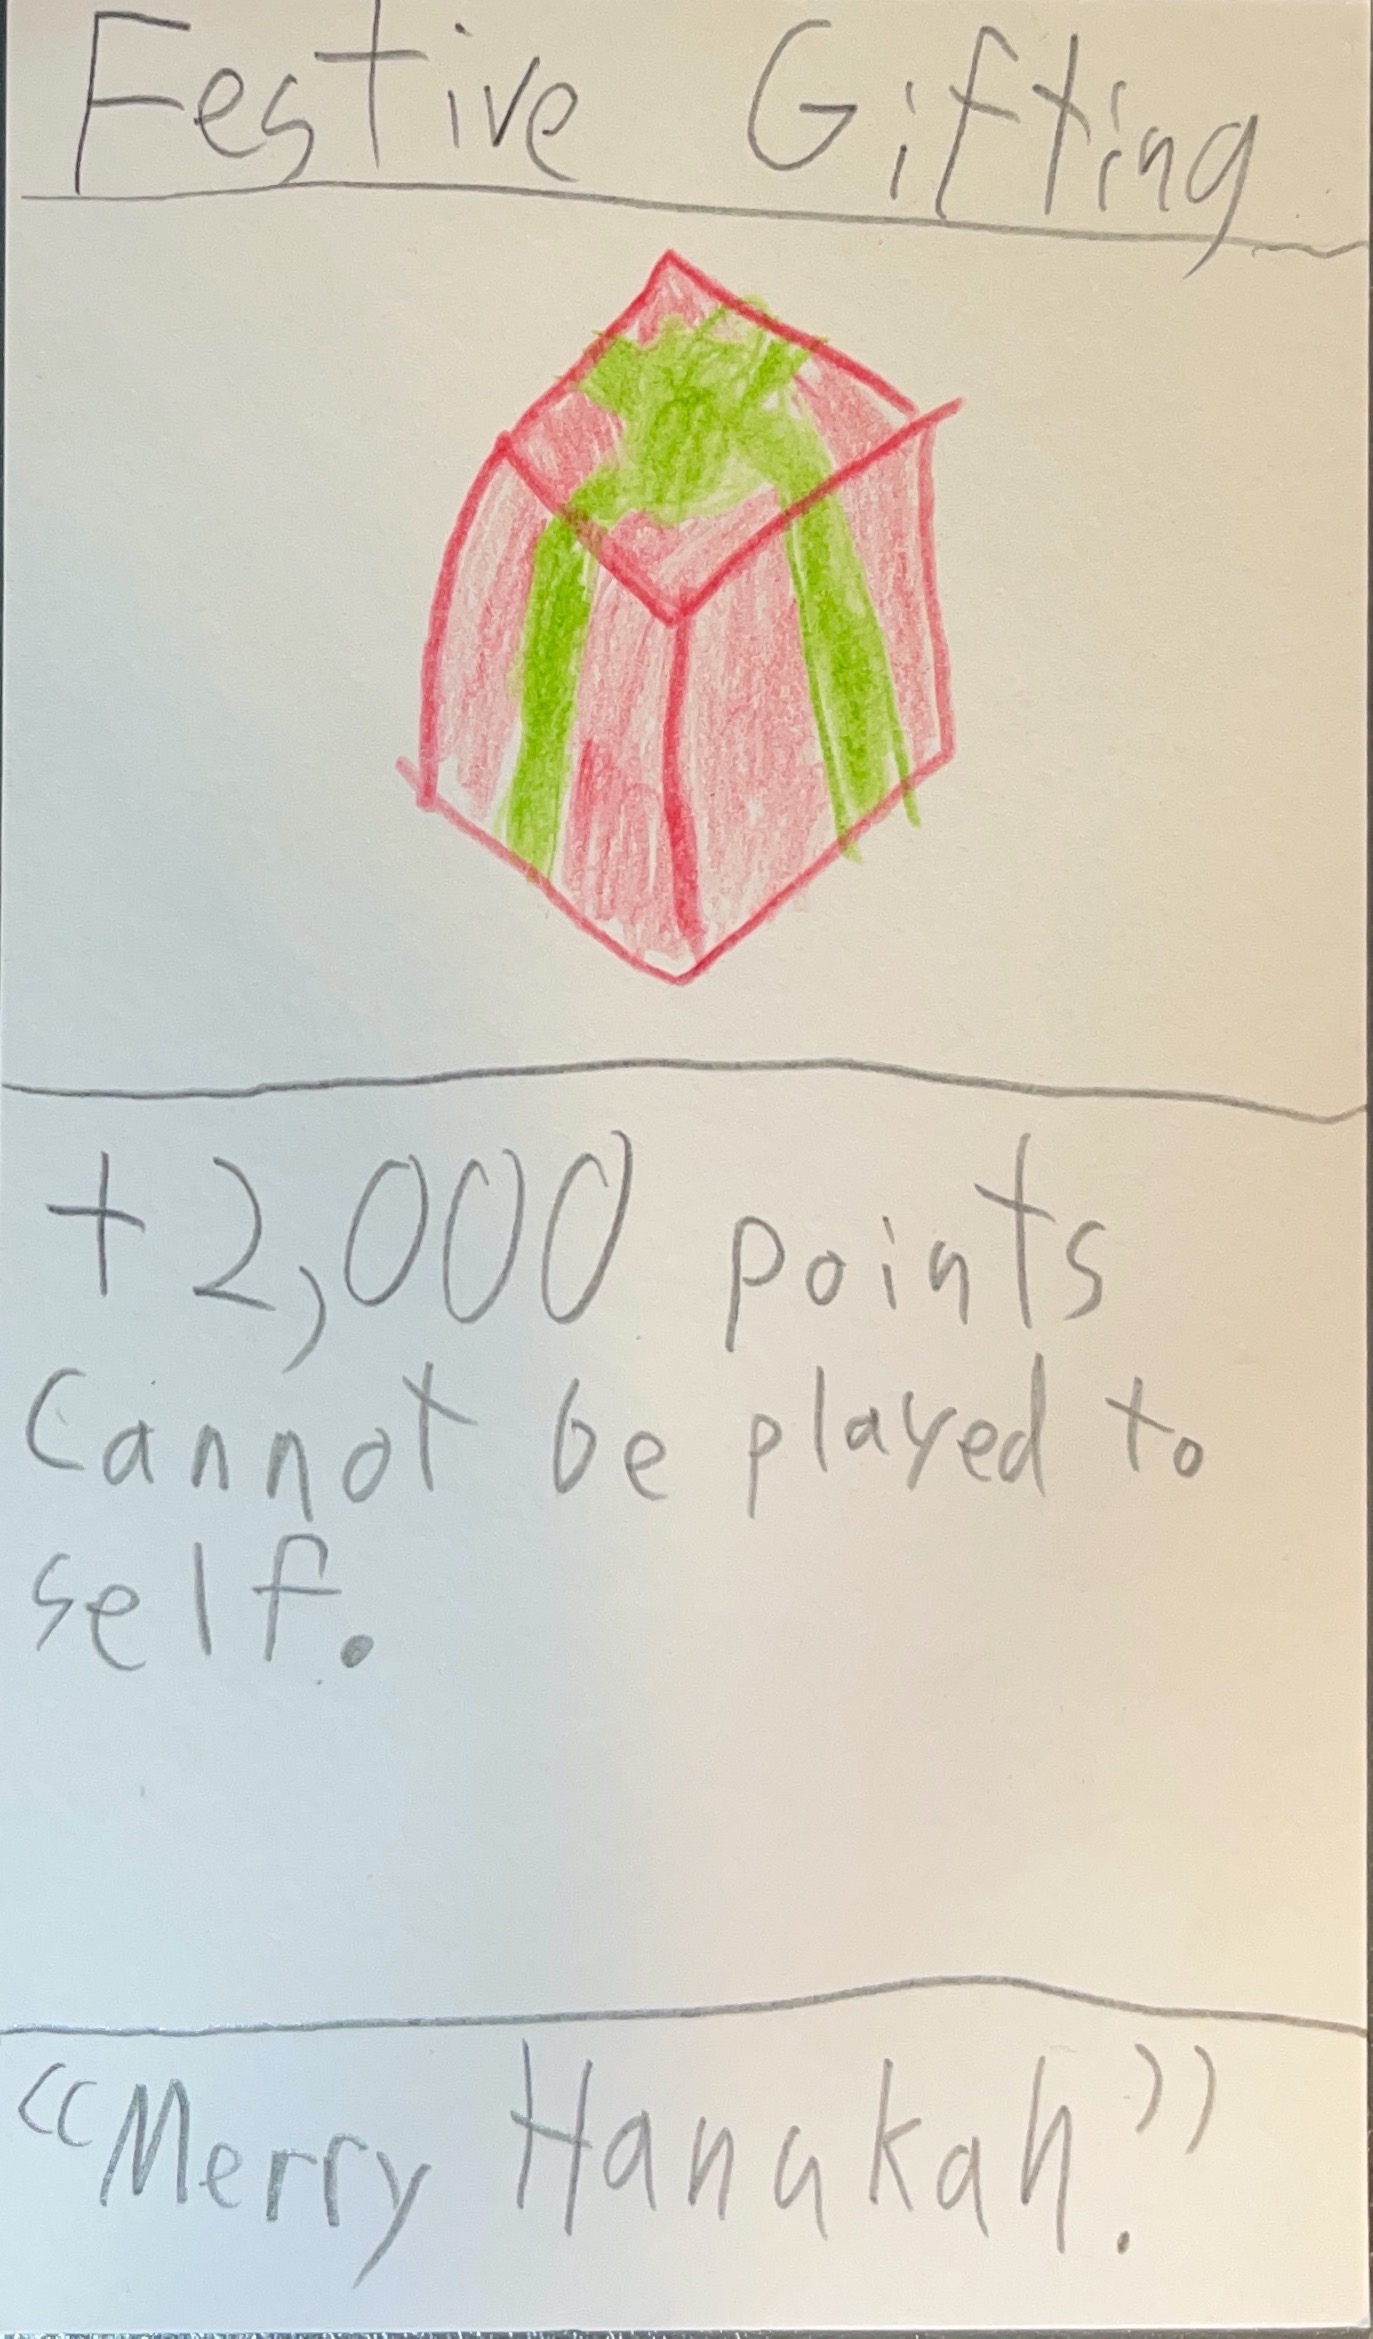 Festive Gifting
+2,000 points
Cannot be played to
self.
“Merry Hanukah.”